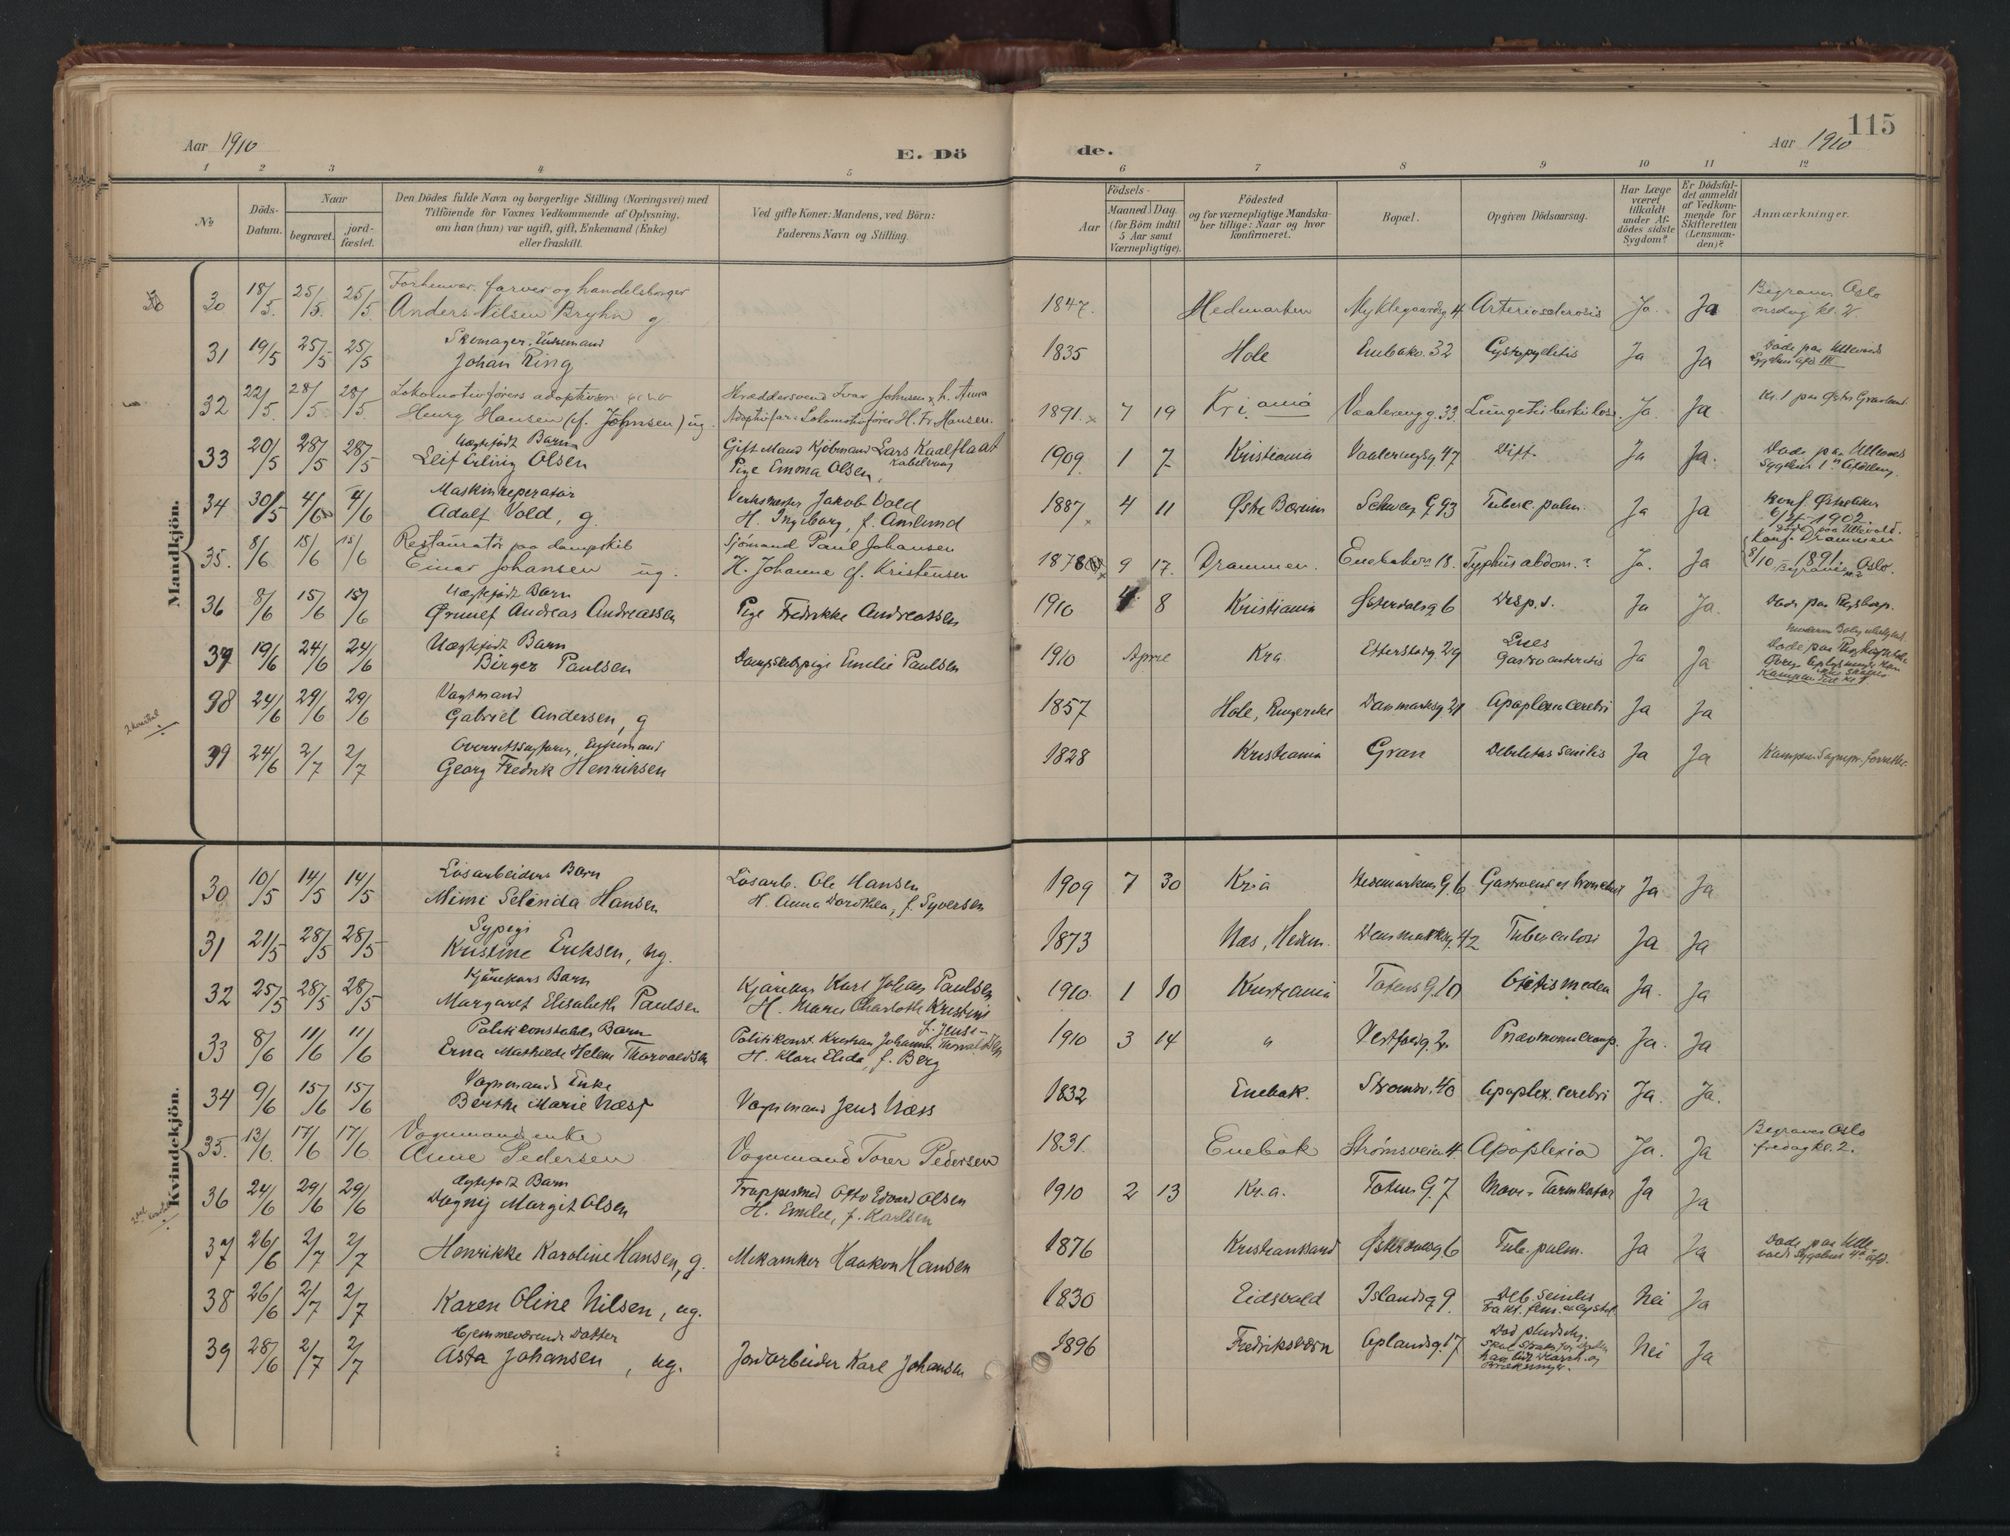 115
Aar 1910
E. Dö
de.
Aar 1910
1 2 3 4 5 6 7 8 9 10 11 12
No
Döds-Datum.
Naar
begravet.
jord-fæstet.
Den Dödes fulde Navn og borgerlige Stilling (Næringsvei) med
Tilföiende for Voxnes Vedkommende af Oplysning,
om han (hun) var ugift, gift, Enkemand (Enke)
eller fraskilt.
Ved gifte Koner: Mandens, ved Börn:
Faderens Navn og Stilling.
Födsels-
Aar
Maaned Dag
(for Börn indtil
5 Aar samt
Værnepligtige).
Födested
og for værnepligtige Mandska-
ber tillige: Naar og hvor
konfirmeret.
Bopæl.
Opgiven Dödsaarsag.
Har Læge
været
tilkaldt
under Af-
dödes sidste
Sygdom?
Er Dödsfal-
det anmeldt
af Vedkom-
mende for
Skifteretten
(Lensman-
den)?
Anmærkninger.
Mandkjön.
30 18/5 25/5 25/5 Forhenvær. farver og handelsborger
Anders Nilsen Bryhn g 1847. Hedemarken Myklegaardsg 4 Arteriosclerosis Ja. Ja Begraves Oslo
onsdag kl. 2.
31 19/5 25/5 25/5 Skomager, Enkemand
Johan Ring 1835 Hole Enebakv. 32 Cystopyelitis Ja Ja Døde paa Ullevaals
Sygehus afd III
32 22/5 28/5 28/5 Lokomotivförers adoptivsön
Henry Hansen (f. Johnsen) ug. Skræddersvend Ivar Johnsen h. Anna
Adoptivfar: Lokomotivförer H. Fr. Hansen. 1891 7 19 Kr.ania Vaalereng g. 33. Lungetuberkulose Ja. Ja Kl. 1 paa Østre Gravlund
33 20/5 28/5 28/5 Uægtefødt Barn
Leif Erling Olsen Gift Mand Kjöbmand Lars Kaalflaat
Pige Emma Olsen, 1909 1 7 Kristiania Vaalerengsg 47 Dift. Ja Ja. Døde paa Ullevaals
Sygehus 1ste Afdeling
34 30/5 4/6 4/6 Maskinreperatør
Adolf Vold, g. Verksmester Jakob Vold
H. Ingeborg, f. Amlund 1887 4 11 Østre Bærum Schweg. G 93 Tuberc. pulm. Ja Ja Konf. Østre Aker
6/4-1902
Døde paa Ullevold.
35. 8/6 15/6 15/6 Restauratör paa dampskib
Einar Johansen ug. Sjömand Paul Johansen
H. Johanne f. Kristensen 1876 9 17. Drammen. Enebakvn 18. Typhus abdom. ? Ja. Ja Konf. Drammen
8/10 1891.
Begraves Oslo.
36 8/6 15/6 15/6 Uægtefødt Barn
Ørnulf Andreas Andreassen Pige Fredrikke Andreassen 1910 4 8 Kristiania Østerdalsg 6 Desp. s. Ja Ja. Døde paa Rigshosp.
37 19/6 24/6 24/6 Uægtefødt Barn
Birger Paulsen Dampskibspige Emilie Paulsen 1910 April Kra Etterstadg. 29 Lues
Gastroenteritis Ja Ja
38 24/6 29/6 29/6 Vognmand
Gabriel Andersen, g 1857 Hole, Ringerike Danmarksg 21 Apoplexia cerebri Ja Ja
39 24/6 2/7 2/7 Overretssagfører, Enkemand
Georg Fredrik Henriksen 1828 Kristiania Gran Debilitas senilis Ja Ja Kampen Sognepr. forretter.
Kvindekjön.
30 10/5 14/5 14/5 Løsarbeiders Barn
Mimi Selinda Hansen Løsarb. Ole Hansen
H. Anna Dorthea, f. Syversen 1909 7 30 Kria Hedemarkens G. 6 Gastroent. et bronchit Ja Ja
31 21/5 28/5 28/5 Sypige
Kristine Eriksen, ug. 1873 Næs, Hedem. Danmarksg. 42 Tuberculose Ja Ja
32 25/5 28/5 28/5 Kjørekars Barn
Margaret Elisabeth Paulsen Kjørekar Karl Johan Paulsen
H. Marie Charlotte Kristine
f. Jense- 1910 1 10 Kristiania Totens G. 10 Otitis media Ja. Ja
33 8/6 11/6 11/6 Politikonstabels Barn
Erna Mathilde Helene Thorvaldsen Politikonst. Kristian Johannes Thorvaldsen
H. Klara Elida, f. Berg 1910 3 14 " Vestfoldg. 2 Pnævmoni croup. Ja. Ja
34 9/6 15/6 15/6 Vognmands Enke
Berthe Marie Næss Vognmand Jens Næss 1832 Enebak. Strømsv. 40 Apoplex. cerebri Ja. Ja.
35. 13/6 17/6 17/6 Vognmandsenke
Anne Pedersen Vognmand Torer Pedersen 1831. Enebak Strømsveien 4. Apoplexia Ja. Ja Begraves Oslo
fredag kl. 2.
36 24/6 29/6 29/6 Ægtefødt Barn
Dagny Margit Olsen Otto Edvard Olsen
H. Emilie, f. Karlsen 1910 2 13 Kr.a. Totens G. 7 Mave- Tarmkatar Ja Ja
37 26/6 2/7 2/7 Henrikke Karoline Hansen, g. Mekaniker Haakon Hansen 1876 Kristiansand Østerdalsg 6 Tub. pulm. Ja Ja Døde paa Ulle
vaals Sygehus 4de Afd.
38 26/6 2/7 2/7 Karen Oline Nilsen, ug. 1830 Eidsvold Islandsg 9. Deb. senilis
Frakt. fem. Nei Ja
39 28/6 2/7 2/7 Hjemmeværende Datter
Asta Johansen, ug. Jordarbeider Karl Johansen 1896 Fredriksværn Oplandsg. 17 Død pludselig. Nei Ja